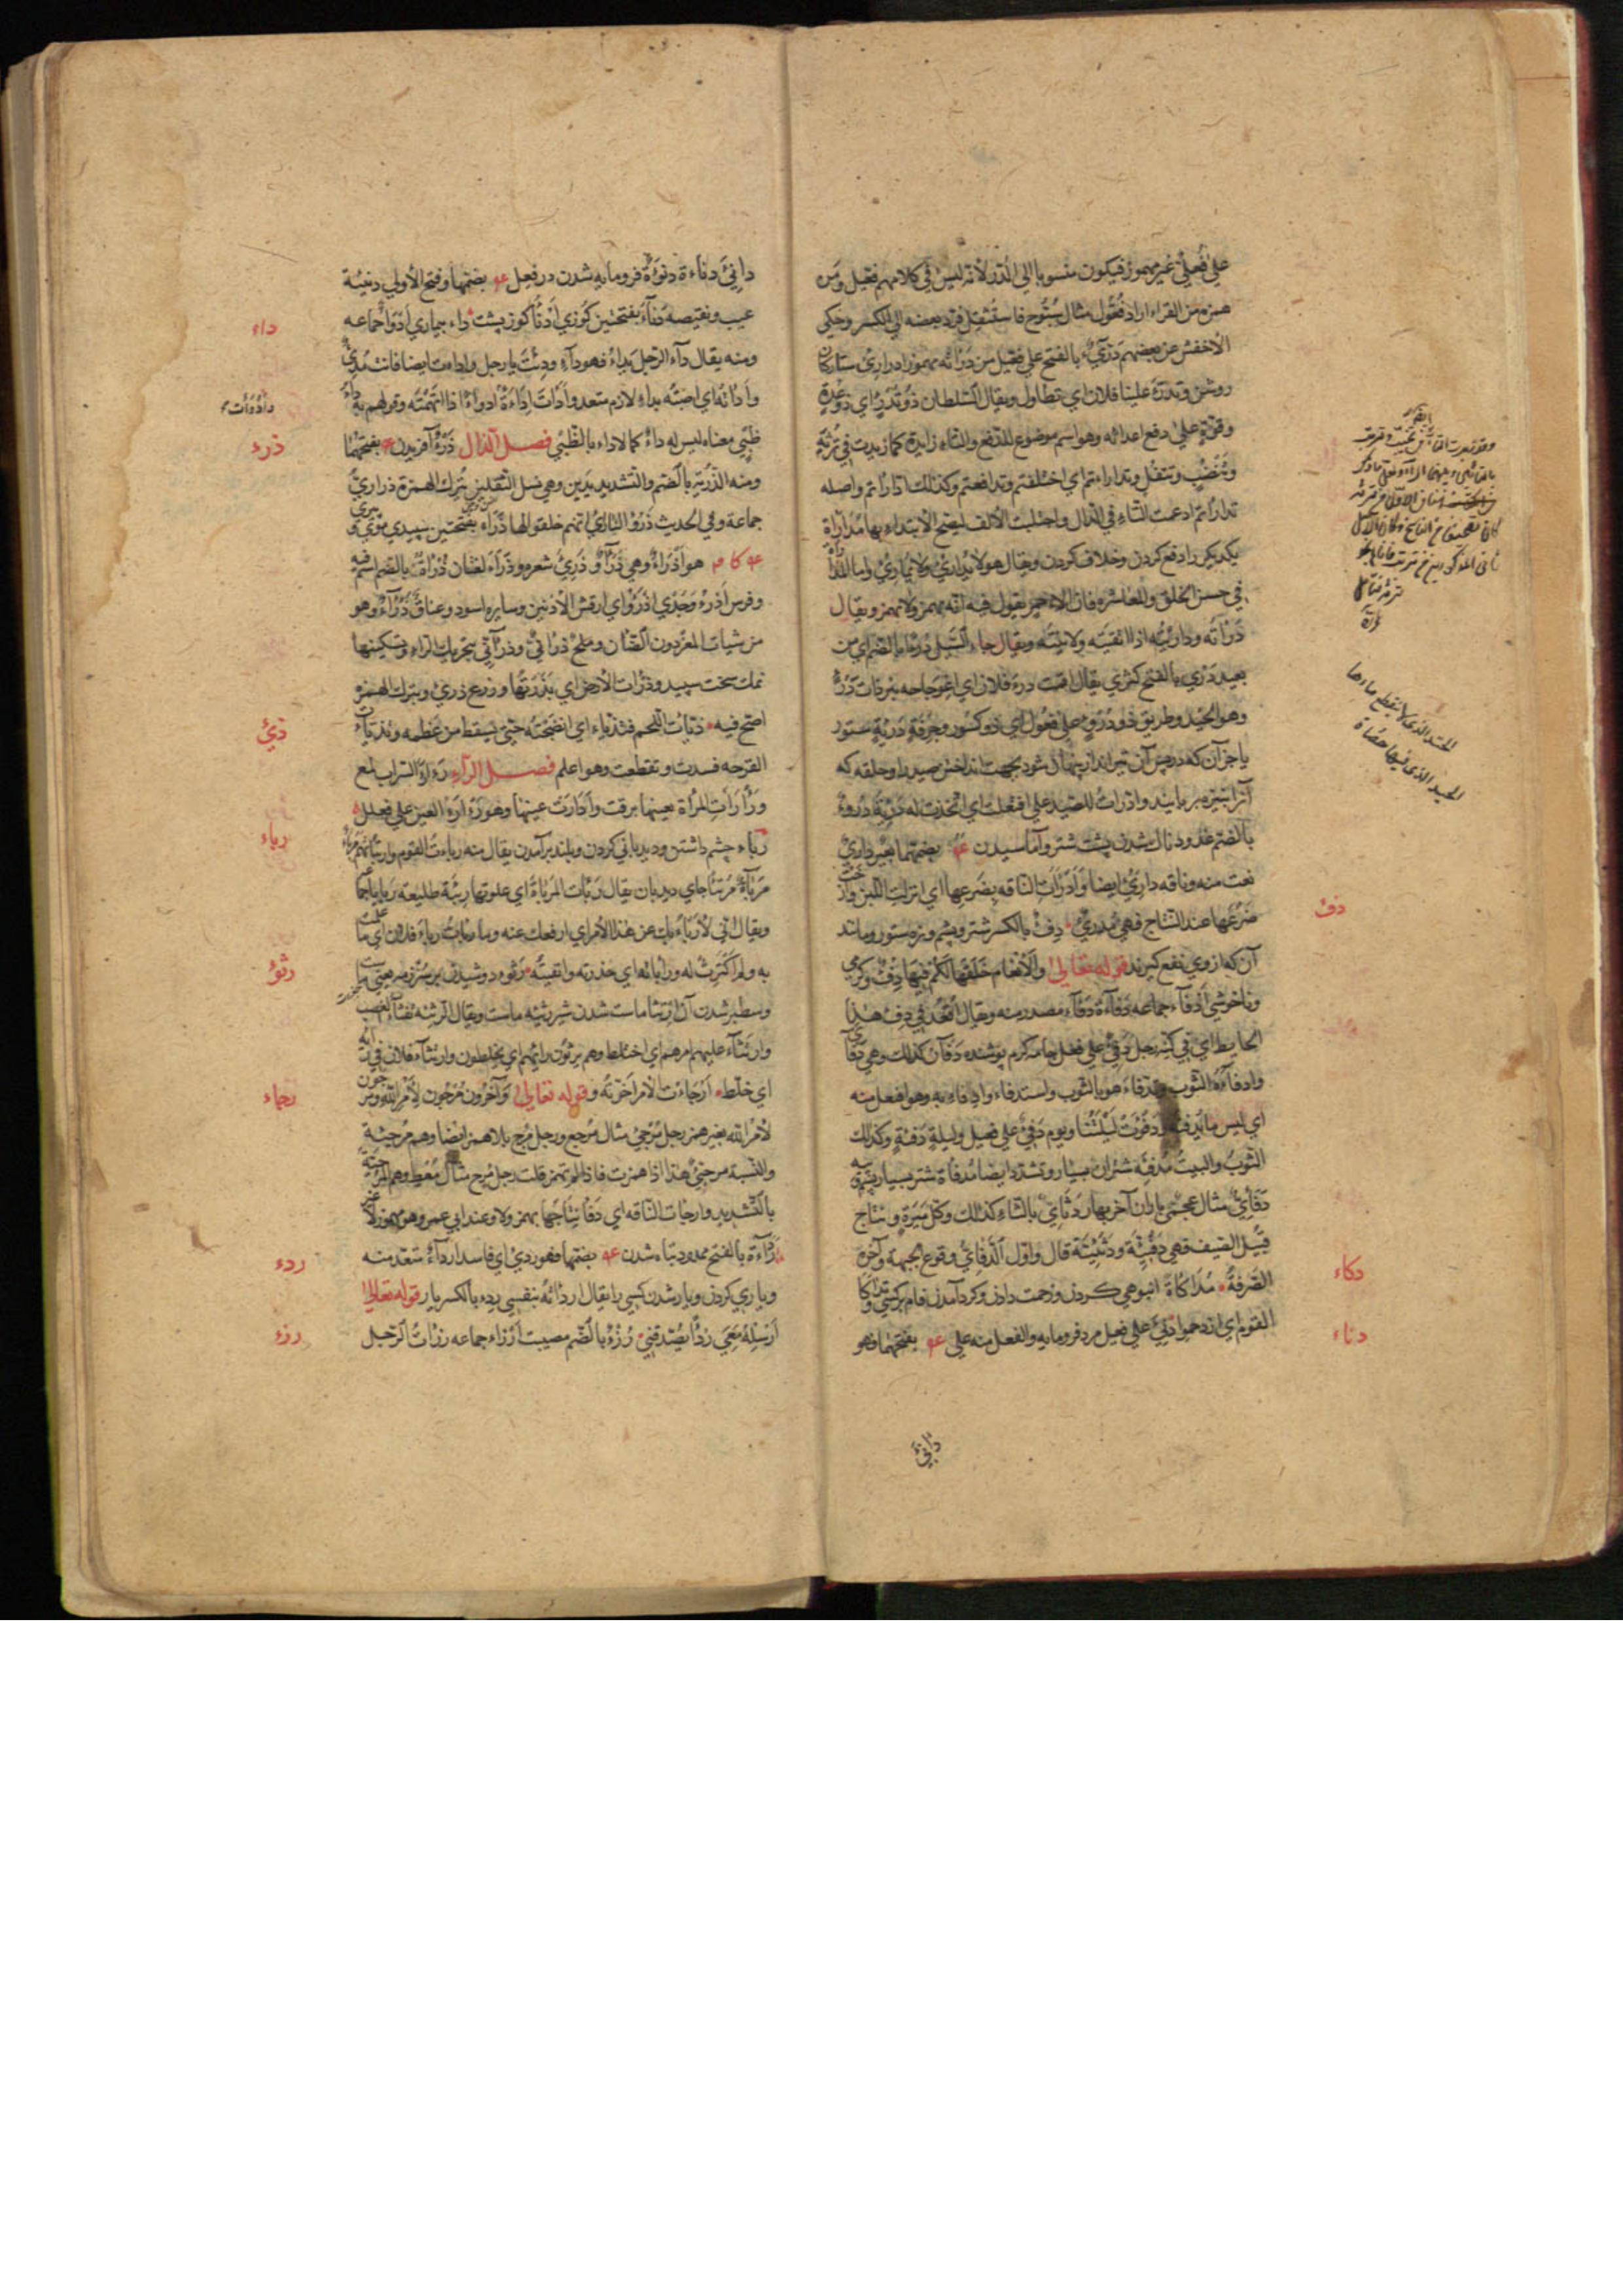 علي فُعلِيّ غير مهموز فيكون منسوبا الي الدّر لأنه ليس في كلامهم فعيل ومن
همزه من القراء اراد فُعّول مثال سُبّوح فاستثقل فردّ بعضه الي الكسر وحكي
الأخفش عن بعضهم دَرّيء بالفتح علي فعيل من دَرَأته مهموزا دراريء ستارکان
روشن وتدرّء علينا فلان اي تطاول ويقال السّلطان ذو تُدرَء اي ذو عُدّة
وقوّة علي دفع اعدائه وهو اسم موضوع للدّفع والتاء زايدة كما زيدت في تُرتَب
وتَنضُب وتتفل وتدارءتم اي اختلفتم وتدافعتم وكذلك ادّارأتم واصله
تدارأتم ادغمت التاء في الدّال واجتلبت الألف ليصح الأبتداء بها مدارأة
يکديکر را دفع کردن وخلاف کردن ويقال هو لا يداريء ولا يماريء واما المدارأة
في حسن الخلق والمعاشرة فان الاحمر يقول فيه انه يهمز ولا يهمز ويقال
دَرَأته وداريته اذا اتقيته ولاينته ويقال جاء السّيل دُرءا بالضم اي من
بعيد دَرء بالفتح کژي يقال اقمت درء فلان اي اعوجاجه
وهو الحَيد وطريق ذو دُروء علي فعول اي ذو كسور وجِرفة دَريّة ستور
يا جز آن که در پس آن تيرانداز پنهان شود بجهت انداختن صيد را وحلقه که
آنرا بنيزه بربايند وادّرأت للصّيد علي افتعلت اي اتّخذت له دريّة دُروء
بالضّم غدود ناک شدن پشت شتر وآماسيدن عه بفتحهما بعير داريء
نعت منه وناقه داريء ايضا وادرأت الناقه بضرعها اي انزلت اللبن وارخت
ضرعها عند النتاج فهي مُدريء دِفء بالكسر شتر وپشم وبره ستور ومانند
آن که ازوي نفع گيرند قوله تعالي والأنعام خلقها لكم فيها دفء وکرمي
وناخوشي ادفاء جماعه دَفاءة دَفآء مصدر منه ويقال اقعد في دفء هذا
الحايط اي في كِنّه رجل دَفِيء علي فعل جامه کرم پوشنده دَفآن كذلك وهي دَفأي
وادفأه الثوب وتدفّاء هو بالثوب واستدفاء وادّفاء به وهو افتعل منه
اي لبس ما يدفئه ودَفُؤت ليلتنا ويوم دَفِيء علي فعيل وليلة دَفِئة وكذلك
الثوب والبيت مُدفِئه شتران بسيار وتشدد ايضا مُدفأة شتر بسيار پشم
دَفَئيّ مثال عجميّ باران آخر بهار دَثَئيّ بالثاء كذلك وكل مِيرة ونتاج
قبيل الصّيف فهي دَفَئيّة ودثئيّة قال واوّل الدّفائيّ وقوع الجبهة وآخره
الصّرفة مُداكأة انبوهي کردن وزحمت دادن وکرد آمدن قام بر کسي تداكأ
القوم اي ازدحموا دَنيء علي فعيل مرد فرومايه والفعل منه علي عه بفتحهما وهو
دانيء
دف
دكاء
دناء
الحيد الذي لا ينقطع ماءها
الحيد الذي فيها حصاة
دانيء دناءة دنوءة فرومايه شدن در فعل عه بضمها وفتح الأولي دنيئة
عيب ونقيصه دَنَأ بفتحتين کوزي ادنأ کوز پشت داء بيماري ادواء جماعه
ومنه يقال داء الرّجل يداء فهو داء ودِئت يا رجل واداءت ايضا فانت مُديء
وادأته اي اصبته بداء لازم متعد وادأت اداءة ادواءً اذا اتّهمته وقولهم به داء
ظبي معناه ليس له داء كما لا داء بالظّبي فصل الذّال ذرء آفريدن عه بفتحهما
ومنه الذّريّة بالضّم والتشديد بدين وهي نسل الثقلين بترك الهمزة ذراريّ
جماعة وفي الحديث ذرؤ النار اي انهم خلقوا لها ذَرَأ بفتحتين سپيدي موي
عه كا مه هو اذرَأ وهي ذَرآء وذَرِئ شعره وذَرَأ لغتان ذُرأة بالضّم اسم فيه
وفرس اذرء وجدي اذرء اي ارقش الأذنين وسايره اسود وعناق ذَرآء وهو
من شيات المعز دون الضّان وملح ذَرآنيّ وذرآني بتحريك الراء وتسكينها
نمک سخت سپيد وذرأت الأرض اي بذرتها وزرع ذريء وبترك الهمزة
اصح فيه ذيّأت اللحم فتذيّاء اي انضجته حتي يسقط من عظمه وتذيأت
القرحه فسدت وتقطعت وهو اعلم فصل الراء رأرأة السّراب لمع
ورأرأت المرأة بعينها برقت وادارت عينها وهو رأراء العين علي فعلل
رباء چشم داشتن وديدباني کردن وبلند برآمدن يقال منه رباءت القوم وارتبأتهم
مربأة مُرتبأ جاي ديدبان يقال ربأت المربأة اي علوتها ربيئة طليعه ربايا جماعة
ويقال اني لأربأ بك عن هذا الأمر اي ارفعك عنه وما ربأت ربأ فلان اي ما علمت
به ولم اكترث له ورابأته اي حذرته واتقيته رثؤ دوشيدن بر شير ترش
وسطبر شدن آن ارتثا ماست شدن شير رثيئة ماست ويقال الرثيئة تفثأ الغضب
وارتثاء عليهم امرهم اي اختلط وهم يرثون رأيهم اي يخلطون وارتثاء فلان في رأيه
اي خلّط ارجاءت الأمر اخّرته وقوله تعالي وآخرون مُرجون لأمر الله
لأمر الله بغير همز رجل مُرجيء مثال مُرجع ورجل مُرج بلا همز ايضا وهم مُرجئة
والنّسبة مرجئيّ هذا اذا همزت فاذا لم تهمز قلت رجل مُرج مثال مُعط وهم المُرجيّة
بالتّشديد وارجأت الناقه اي دنا نتاجها يهمز ولا وعند ابي عمرو هو مهموز لا غير
رَدآءة بالفتح ممدود تباه شدن عه بضمهما فهو رديء اي فاسد ارداء متعد منه
وياري کردن ويار شدن کسي را يقال اردأته بنفسي ردء بالكسر يار قوله تعالي
ارسله معي ردءًا يصدّقني رُزء بالضّم مصيبت ارزاء جماعه رزأت الرّجل
داء
وادوءات
ذرء
ذيئ
رباء
رثؤ
رجاء
ردء
رزء